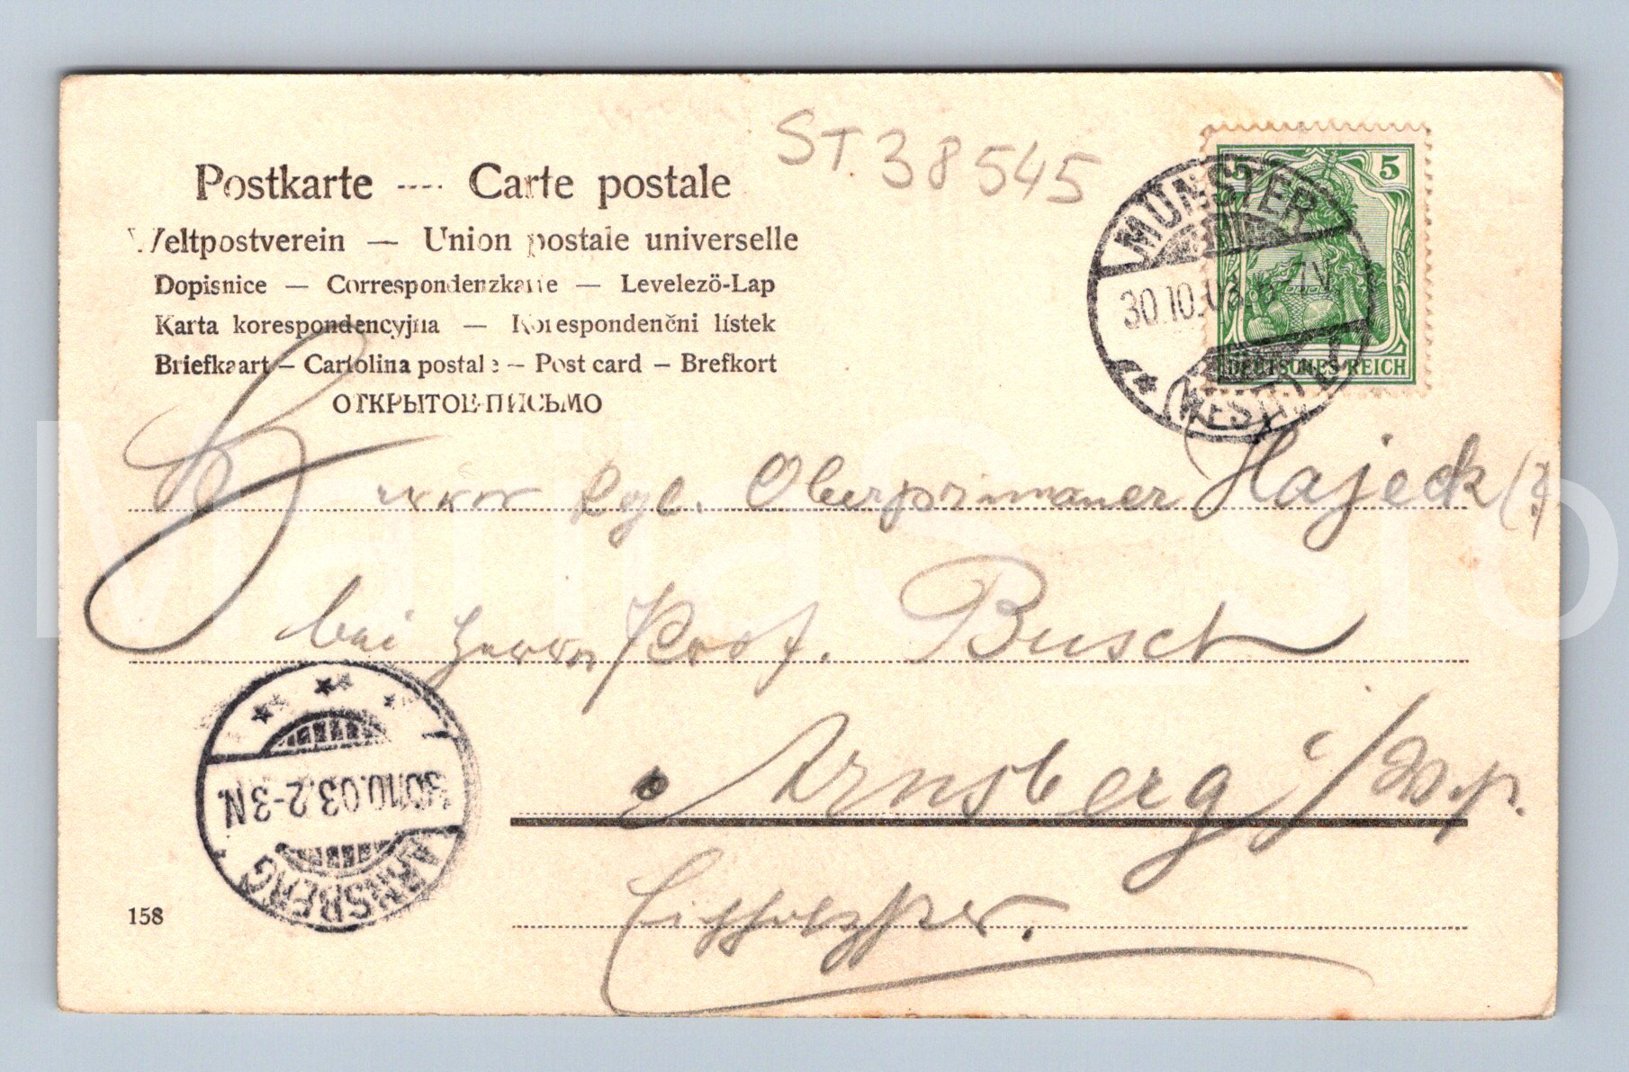 ST. 38545
Postkarte ---- Carte postale
Weltpostverein — Union postale universelle
Dopisnice — Correspondenzkarte — Levelező-Lap
Karta korespondencyjna — Korespondenčni lístek
Briefkaart – Cartolina postale – Post card – Brefkort
ОТКРЫТОЕ ПИСЬМО
5 5
DEUTSCHES REICH
MÜNSTER
30.10.03.
(WESTF.)
Herrn Kgl. Oberprimaner Hajeck (?)
bei Herrn Prof. Busch
Arnsberg i/W.
ARNSBERG
30.10.03.2-3N.
158